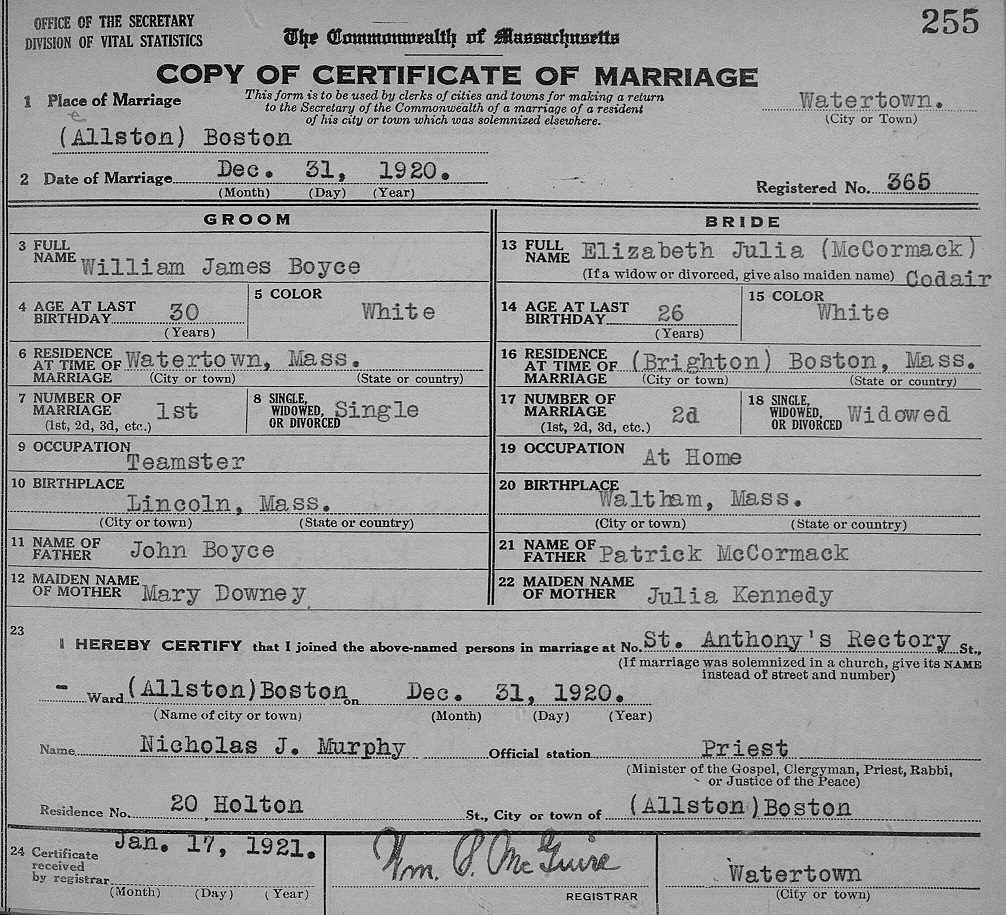 OFFICE OF THE SECRETARY
DIVISION OF VITAL STATISTICS
The Commonwealth of Massachusetts
255
COPY OF CERTIFICATE OF MARRIAGE
This form is to be used by clerks of cities and towns for making a return
to the Secretary of the Commonwealth of a marriage of a resident
of his city or town which was solemnized elsewhere.
1 Place of Marriage
(Allston) Boston
Watertown.
(City or Town)
2 Date of Marriage Dec. 31, 1920.
(Month) (Day) (Year)
Registered No. 365
GROOM
3 FULL NAME William James Boyce
4 AGE AT LAST BIRTHDAY 30
(Years)
5 COLOR White
6 RESIDENCE AT TIME OF MARRIAGE Watertown, Mass.
(City or town) (State or country)
7 NUMBER OF MARRIAGE 1st
(1st, 2d, 3d, etc.)
8 SINGLE, WIDOWED, OR DIVORCED Single
9 OCCUPATION Teamster
10 BIRTHPLACE Lincoln, Mass.
(City or town) (State or country)
11 NAME OF FATHER John Boyce
12 MAIDEN NAME OF MOTHER Mary Downey
BRIDE
13 FULL NAME Elizabeth Julia (McCormack)
(If a widow or divorced, give also maiden name) Codair
14 AGE AT LAST BIRTHDAY 26
(Years)
15 COLOR White
16 RESIDENCE AT TIME OF MARRIAGE (Brighton) Boston, Mass.
(City or town) (State or country)
17 NUMBER OF MARRIAGE 2d
(1st, 2d, 3d, etc.)
18 SINGLE, WIDOWED, OR DIVORCED Widowed
19 OCCUPATION At Home
20 BIRTHPLACE Waltham, Mass.
(City or town) (State or country)
21 NAME OF FATHER Patrick McCormack
22 MAIDEN NAME OF MOTHER Julia Kennedy
23
I HEREBY CERTIFY that I joined the above-named persons in marriage at No. St. Anthony's Rectory St.,
(If marriage was solemnized in a church, give its NAME
instead of street and number)
- Ward (Allston)Boston on Dec. 31, 1920.
(Name of city or town) (Month) (Day) (Year)
Name Nicholas J. Murphy Official station Priest
(Minister of the Gospel, Clergyman, Priest, Rabbi,
or Justice of the Peace)
Residence No. 20 Holton St., City or town of (Allston)Boston
24 Certificate received by registrar Jan. 17, 1921.
(Month) (Day) (Year)
Wm. P. McGuire
REGISTRAR
Watertown
(City or town)